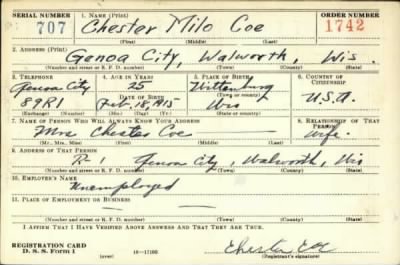 SERIAL NUMBER 1. NAME (Print) ORDER NUMBER
707 Chester Milo Coe 1742
(First) (Middle) (Last)
2. ADDRESS (Print)
Genoa City, Walworth, Wis.
(Number and street or R. F. D. number) (Town) (County) (State)
3. TELEPHONE 4. AGE IN YEARS 5. PLACE OF BIRTH 6. COUNTRY OF CITIZENSHIP
Genoa City 25 Wittenburg
DATE OF BIRTH (Town or county)
89R1 Feb. 18, 1915 Wis U.S.A.
(Exchange) (Number) (Mo.) (Day) (Yr.) (State or country)
7. NAME OF PERSON WHO WILL ALWAYS KNOW YOUR ADDRESS 8. RELATIONSHIP OF THAT PERSON
Mrs Chester Coe wife
(Mr., Mrs., Miss) (First) (Middle) (Last)
9. ADDRESS OF THAT PERSON
R-1 Genoa City, Walworth, Wis
(Number and street or R. F. D. number) (Town) (County) (State)
10. EMPLOYER'S NAME
Unemployed
11. PLACE OF EMPLOYMENT OR BUSINESS
(Number and street or R. F. D. number) (Town) (County) (State)
I AFFIRM THAT I HAVE VERIFIED ABOVE ANSWERS AND THAT THEY ARE TRUE.
REGISTRATION CARD
D. S. S. Form 1 (over) 16—17105 Chester Coe
(Registrant's signature)